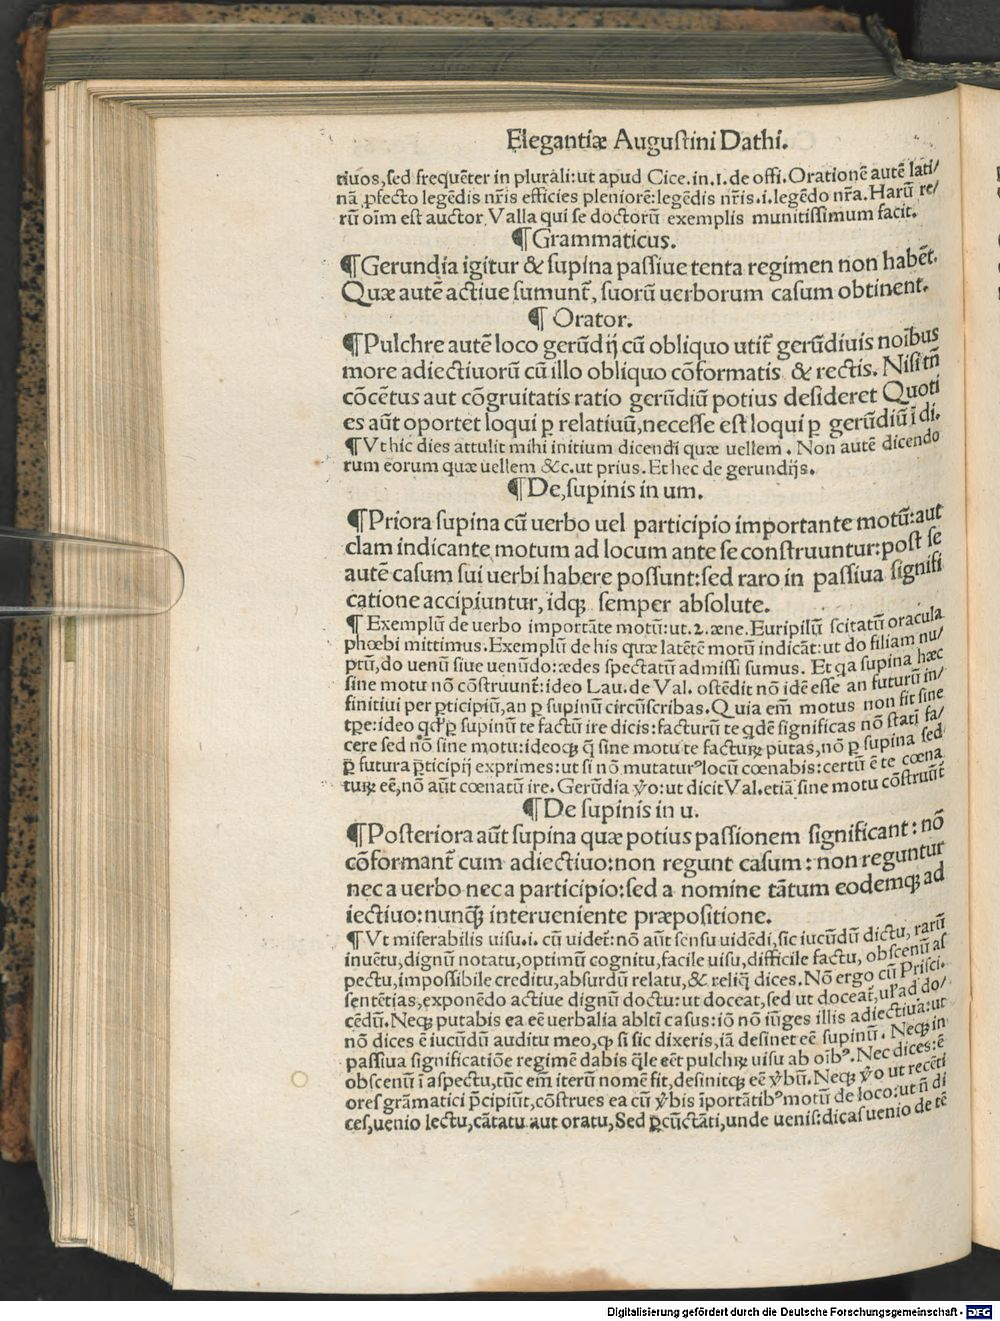 Elegantiæ Augustini Dathi.
tiuos,sed frequēter in plurali:ut apud Cice.in.1.de offi.Orationē autē lati/
nā ꝓfecto legēdis nr̄is efficies pleniorē:legēdis nr̄is.i.legēdo nr̄a.Harū re/
rū oīm est auctor Valla qui se doctorū exemplis munitissimum facit.
¶Grammaticus.
¶Gerundia igitur & supina passiue tenta regimen non habēt.
Quæ autē actiue sumunt̄, suorū uerborum casum obtinent.
¶ Orator.
¶Pulchre autē loco gerūdij cū obliquo utit̄ gerūdiuis noībus
more adiectiuorū cū illo obliquo cōformatis & rectis. Nisi tn̄
cōcētus aut cōgruitatis ratio gerūdiū potius desideret Quoti
es aūt oportet loqui ꝑ relatiuū,necesse est loqui ꝑ gerūdiū ī di.
¶Vt hic dies attulit mihi initium dicendi quæ uellem. Non autē dicendo
rum eorum quæ uellem &c.ut prius. Et hec de gerundijs.
¶De,supinis in um.
¶Priora supina cū uerbo uel participio importante motū:aut
clam indicante motum ad locum ante se construuntur:post se
autē casum sui uerbi habere possunt:sed raro in passiua signifi
catione accipiuntur, idqꝫ semper absolute.
¶ Exemplū de uerbo importāte motū:ut.2.æne.Euripilū scitatū oracula
phœbi mittimus.Exemplū de his quæ latētē motū indicāt:ut do filiam nu/
ptū,do uenū siue uenūdo:ædes spectatū admissi sumus. Et qa supina hæc
sine motu nō cōstruunt̄:ideo Lau.de Val. ostēdit nō idē esse an futurū in/
finitiui per ꝑticipiū,an ꝑ supinū circūscribas.Quia em̄ motus non fit sine
tꝑe:ideo qd̕ ꝑ supinū te factū ire dicis:facturū te qdē significas nō stati fa/
cere sed nō sine motu:ideoqꝫ q̄ sine motu te facturꝝ putas,nō ꝑ supina sed
ꝑ futura ꝑticipij exprimes:ut si nō mutaturꝰ locū cœnabis:certū ē te cœna
turꝝ eē,nō aūt cœnatū ire. Gerūdia v̊o:ut dicit Val.etiā sine motu cōstruūt̄
¶De supinis in u.
¶Posteriora aūt supina quæ potius passionem significant: nō
cōformant̄ cum adiectiuo:non regunt casum: non reguntur
nec a uerbo nec a participio:sed a nomine tātum eodemqꝫ ad
iectiuo:nunq̄ꝫ interueniente præpositione.
¶Vt miserabilis uisu.i. cū uidet̄:nō aūt sensu uidēdi,sic iucūdū dictu, rarū
inuētu,dignū notatu,optimū cognitu,facile uisu,difficile factu, obscenū as
pectu,impossibile creditu,absurdū relatu,& reliq̄ dices.Nō ergo cū Prisci.
sentētias,exponēdo actiue dignū doctu:ut doceat,sed ut doceat̄,uł ad do/
cēdū.Neqꝫ putabis ea eē uerbalia ablti casus:iō nō iūges illis adiectiua:ut
nō dices ē iucūdū auditu meo,qꝫ si sic dixeris,iā desinet eē supinū. Neqꝫ in
passiua significatiōe regimē dabis q̄le eēt pulchrꝝ uisu ab oībꝰ.Nec dices:ē
obscenū ī aspectu,tūc em̄ iterū nomē fit,desinitqꝫ eē v̊bū.Neqꝫ v̊o ut recēti
ores grāmatici p̄cipiūt,cōstrues ea cū v̊bis īportātibꝰ motū de loco:ut n̄ di
ces,uenio lectu,cātatu aut oratu, Sed ꝑcūctāti,unde uenis:dicas uenio de tē
Digitalisierung gefördert durch die Deutsche Forschungsgemeinschaft - DFG